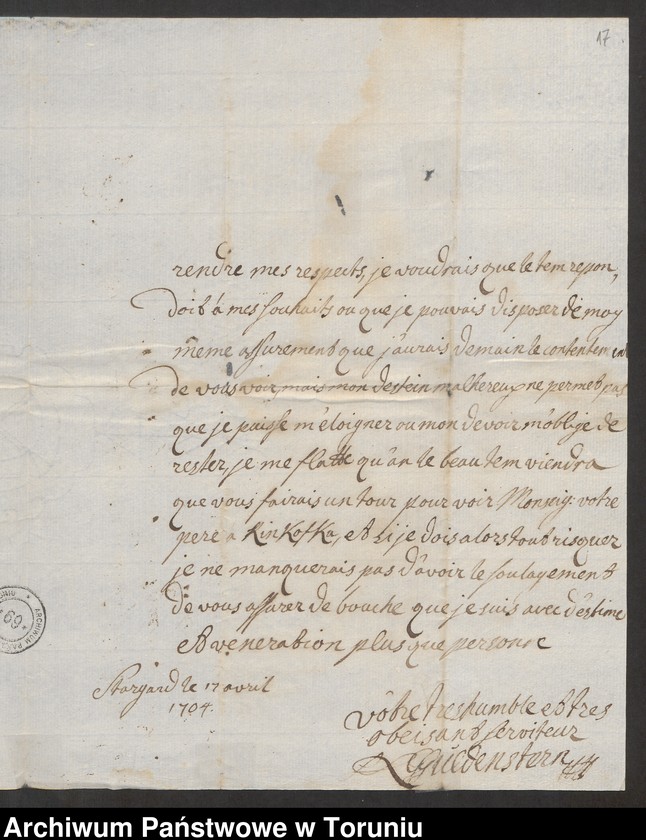 17
rendre mes respects, je voudrais que le tem repon,
doit â mes souhaits ou que je pouvais disposer de moy
même assurement que j'aurais demain le contentement
de vous voir, mais mon destein malhereux ne permet pas
que je paisse m'éloigner ou mon devoir m'oblije de
rester, je me flatte qu'an le beau tem viendra
que vous fairais un tour pour voir Monseig: votre
pere a KinKofka, et si je dois alors tout risquer
je ne manquerais pas d'avoir le soulagement
de vous assurer de bouche que je suis avec d'estime
et veneration plus que personne
Stargard le 17 avril
1704.
vôtre treshumble et tres
obeisant serviteur
Gyldenstern
ARCHIWUM
69
Archiwum Państwowe w Toruniu